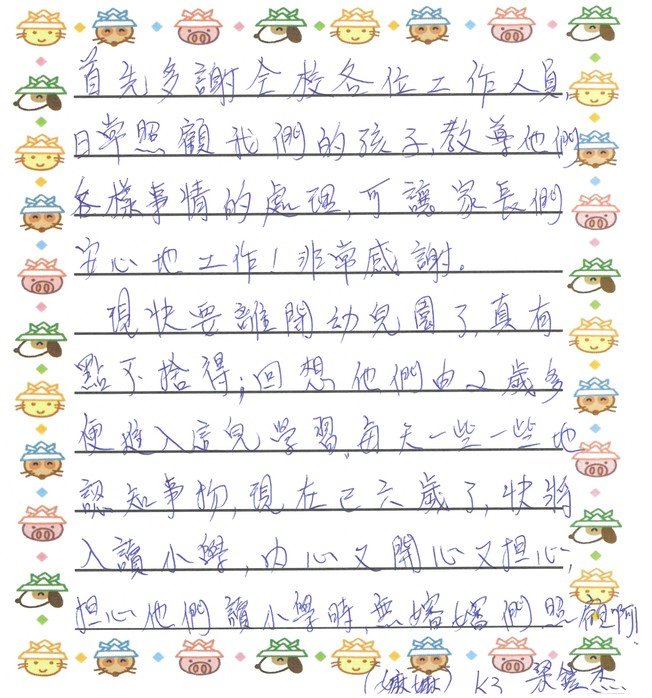 首先多謝全校各位工作人員,
日常照顧我們的孩子,教導他們
各樣事情的處理,可讓家長們
安心地工作!非常感謝。
現快要離開幼兒園了,真有
點不捨得;回想他們由2歲多
便進入這兒學習,每天一些一些地
認知事物,現在已六歲了,快將
入讀小學,內心又開心又擔心;
担心他們讀小學時,無嬸嬸們照顧啊!
K3 梁 杰